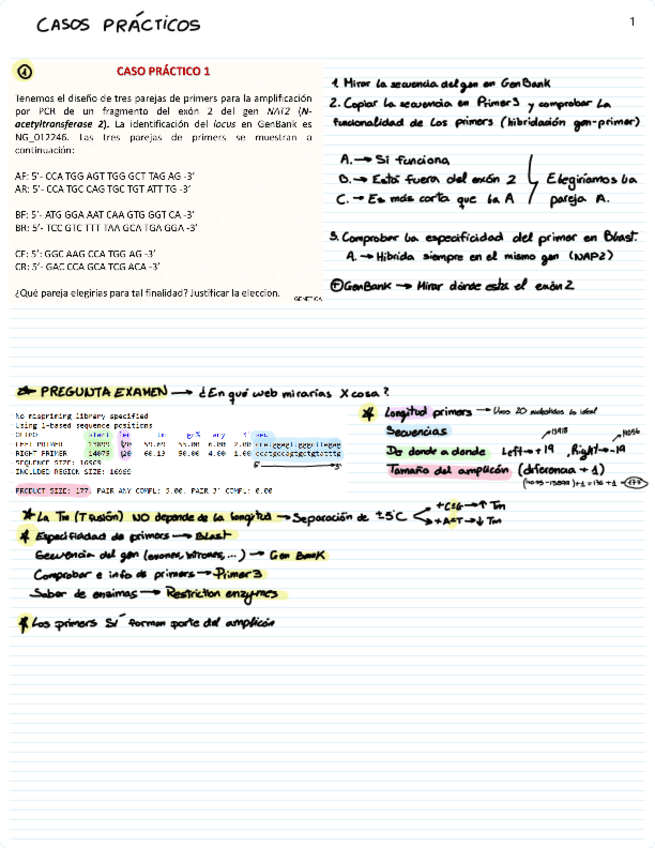 CASOS PRÁCTICOS
1
① CASO PRÁCTICO 1
Tenemos el diseño de tres parejas de primers para la amplificación
por PCR de un fragmento del exón 2 del gen NAT2 (N-
acetyltransferase 2). La identificación del locus en GenBank es
NG_012246. Las tres parejas de primers se muestran a
continuación:
AF: 5'- CCA TGG AGT TGG GCT TAG AG -3'
AR: 5'- CCA TGC CAG TGC TGT ATT TG -3'
BF: 5'- ATG GGA AAT CAA GTG GGT CA -3'
BR: 5'- TCC GTC TTT TAA GCA TGA GGA -3'
CF: 5': GGC AAG CCA TGG AG -3'
CR: 5'- GAC CCA GCA TCG ACA -3'
¿Qué pareja elegirias para tal finalidad? Justificar la eleccion.
GENETICA
1. Mirar la secuencia del gen en GenBank
2. Copiar la secuencia en Primer3 y comprobar la
funcionalidad de los primers (hibridación gen-primer)
A. → Si funciona
B. → Está fuera del exón 2
C. → Es más corta que la A
Elegiríamos la
pareja A.
3. Comprobar la especificidad del primer en Blast.
A. → Hibrida siempre en el mismo gen (NAP2)
GenBank → Mirar dónde está el exón 2
PREGUNTA EXAMEN → ¿En qué web mirarías X cosa?
No mispriming library specified
Using 1-based sequence positions
OLIGO start len tm gc% any 3' seq
LEFT PRIMER 13899 20 59.69 55.00 6.00 2.00 ccatggagttgggcttagag
RIGHT PRIMER 14075 20 60.13 50.00 4.00 1.00 ccatgccagtgctgtatttg
SEQUENCE SIZE: 16969
INCLUDED REGION SIZE: 16969
5' 3'
PRODUCT SIZE: 177, PAIR ANY COMPL: 5.00, PAIR 3' COMPL: 0.00
Longitud primers → Unos 20 nucleótidos lo ideal
Secuencias
De donde a donde Left → +19, Right → -19
13918
14056
Tamaño del amplicón (diferencia + 1)
(14075-13899)+1 = 176 + 1 = 177
La Tm (T fusión) NO depende de la longitud → Separación de ±5°C
+C≡G → ↑ Tm
+A=T → ↓ Tm
Especificidad de primers → Blast
Secuencia del gen (exones, intrones, ...) → Gen Bank
Comprobar e info de primers → Primer 3
Saber de enzimas → Restriction enzymes
Los primers SÍ forman parte del amplicón